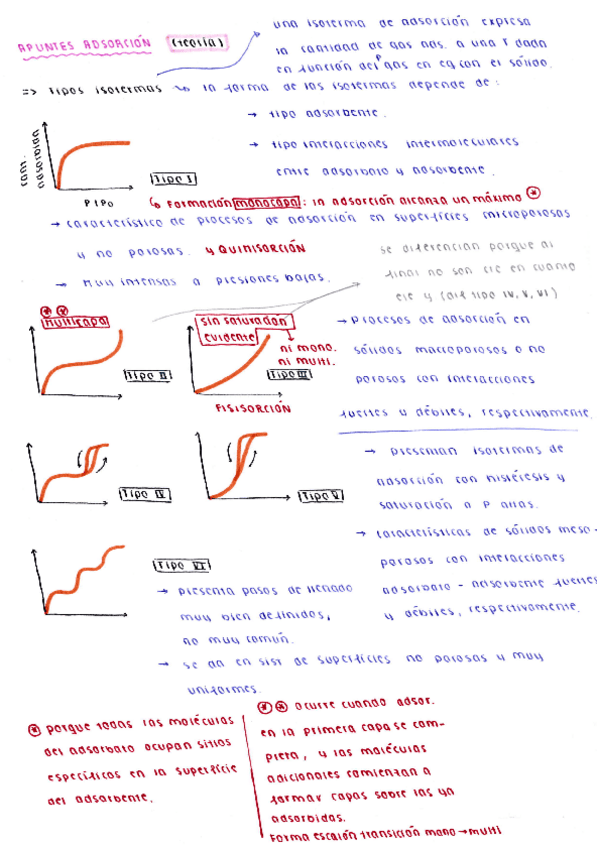 APUNTES ADSORCIÓN (teoría)
una isoterma de adsorción expresa
la cantidad de gas ads. a una T dada
en función del P gas en eq con el sólido.
=> Tipos isotermas ↳ la forma de las isotermas depende de:
→ tipo adsorbente.
→ tipo interacciones intermoleculares
entre adsorbato y adsorbente.
cant. adsorbida
P/P₀
Tipo I
↳ Formación monocapa: la adsorción alcanza un máximo *
→ característico de procesos de adsorción en superficies microporosas
y no porosas. y QUIMISORCIÓN
→ Muy intensas a presiones bajas.
se diferencian porque al
final no son cte en cuanto
eje y (dif tipo IV, V, VI)
* *
multicapa
Tipo II
sin saturación
evidente
ni mono.
ni multi.
Tipo III
FISISORCIÓN
→ Procesos de adsorción en
sólidos macroporosos o no
porosos con interacciones
fuertes y débiles, respectivamente.
Tipo IV
Tipo V
→ presentan isotermas de
adsorción con histéresis y
saturación a P altas.
→ características de sólidos meso-
porosos con interacciones
adsorbato - adsorbente fuertes
y débiles, respectivamente.
Tipo VI
→ presenta pasos de llenado
muy bien definidos,
no muy común.
→ se da en sist de superficies no porosas y muy
uniformes.
* porque todas las moléculas
del adsorbato ocupan sitios
específicos en la superficie
del adsorbente.
* * ocurre cuando adsor.
en la primera capa se com-
pleta, y las moléculas
adicionales comienzan a
formar capas sobre las ya
adsorbidas.
Forma escalón transición mono → multi